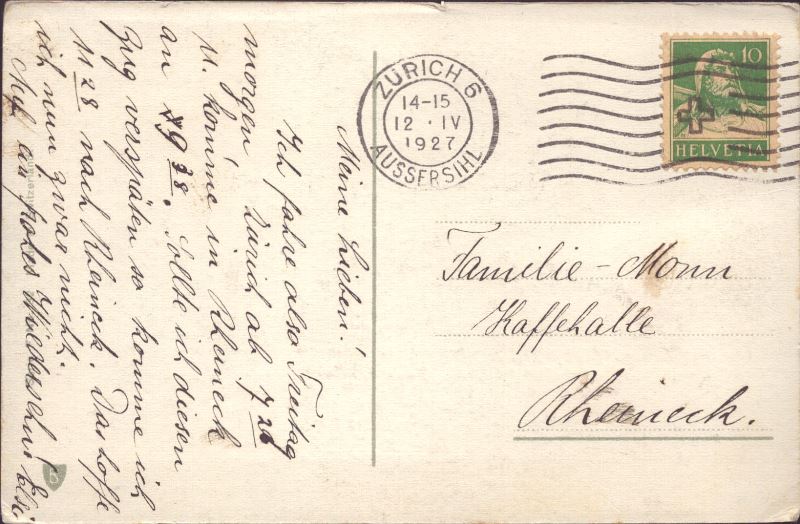 Meine Lieben!
Ich fahre also Freitag
morgen Zürich ab 7 26
u. komme in Rheineck
an 9 38. Sollte ich diesen
Zug verspäten so komme ich
11 28 nach Rheineck. Das hoffe
ich nun zwar nicht.
Auf ein frohes Wiedersehn Elsi
ZÜRICH 6
14-15
12 · IV
1927
AUSSERSIHL
10
HELVETIA
Familie - Monn
Kaffehalle
Rheineck.